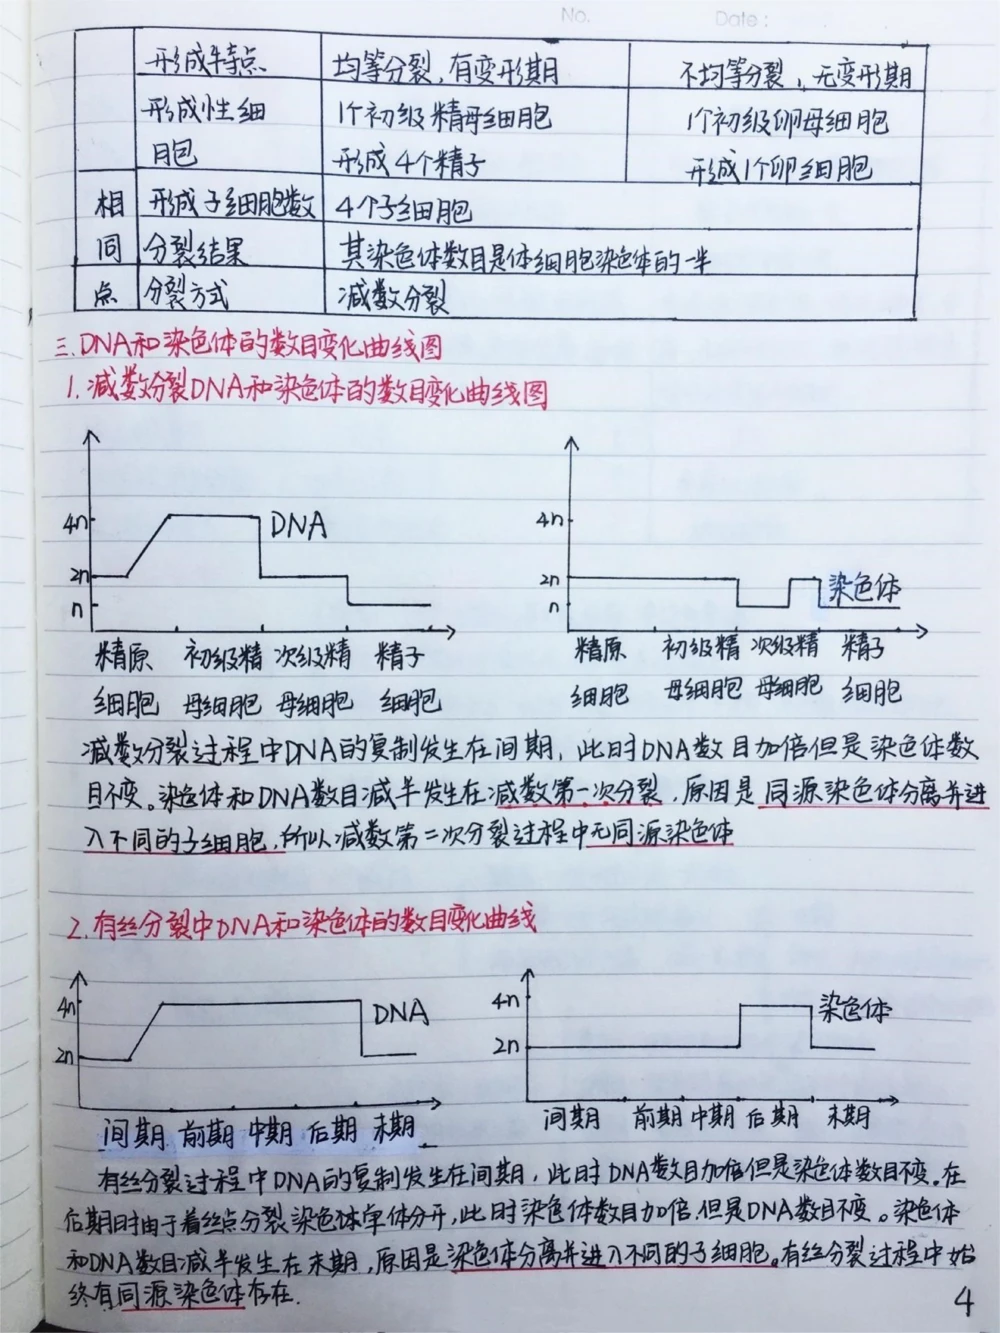 No.
Date:
形成特点 均等分裂,有变形期 不均等分裂,无变形期
形成性细 1个初级精母细胞 1个初级卵母细胞
胞 形成4个精子 形成1个卵细胞
相 形成子细胞数 4个子细胞
同 分裂结果 其染色体数目是体细胞染色体的一半
点 分裂方式 减数分裂
三、DNA和染色体的数目变化曲线图
1.减数分裂DNA和染色体的数目变化曲线图
4n DNA 4n
2n 2n 染色体
n n
精原 初级精 次级精 精子 精原 初级精 次级精 精子
细胞 母细胞 母细胞 细胞 细胞 母细胞 母细胞 细胞
减数分裂过程中DNA的复制发生在间期,此时DNA数目加倍但是染色体数
目不变。染色体和DNA数目减半发生在减数第一次分裂,原因是同源染色体分离并进
入不同的子细胞,所以减数第二次分裂过程中无同源染色体
2.有丝分裂中DNA和染色体的数目变化曲线
4n DNA 4n 染色体
2n 2n
间期 前期 中期 后期 末期 间期 前期 中期 后期 末期
有丝分裂过程中DNA的复制发生在间期,此时DNA数目加倍但是染色体数目不变。在
后期时由于着丝点分裂染色体单体分开,此时染色体数目加倍,但是DNA数目不变。染色体
和DNA数目减半发生在末期,原因是染色体分离并进入不同的子细胞。有丝分裂过程中始
终有同源染色体存在.
4